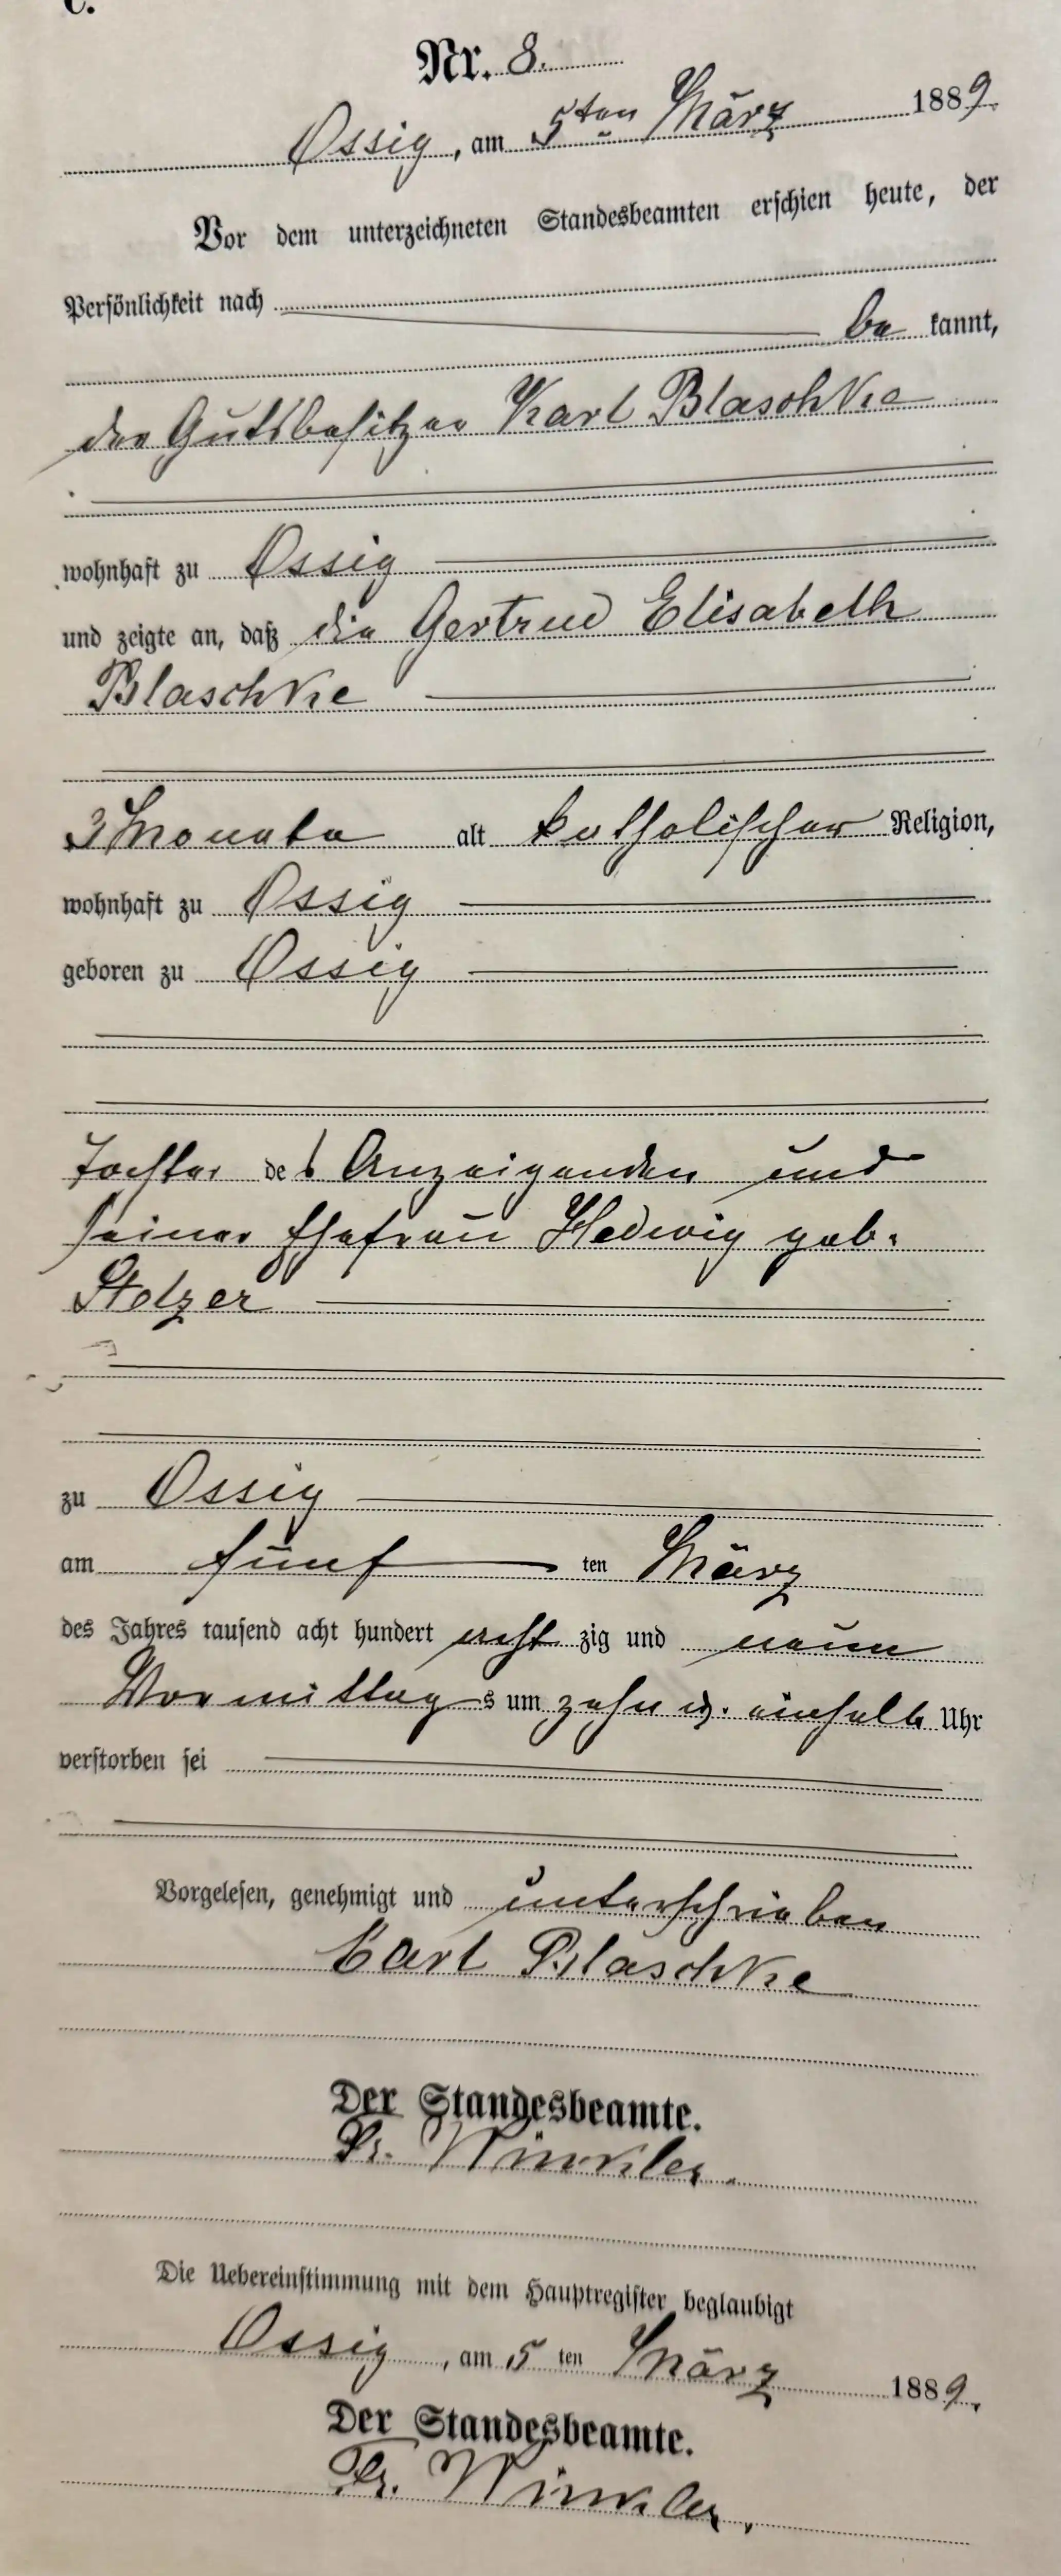 C.
Nr. 8.
Ossig, am 5ten März 1889.
Vor dem unterzeichneten Standesbeamten erschien heute, der
Persönlichkeit nach
be kannt,
der Gutsbesitzer Karl Blaschke
wohnhaft zu Ossig
und zeigte an, daß die Gertrud Elisabeth
Blaschke
3 Monate alt katholischer Religion,
wohnhaft zu Ossig
geboren zu Ossig
Tochter des Anzeigenden und
seiner Ehefrau Hedwig geb.
Stelzer
zu Ossig
am fünf ten März
des Jahres tausend acht hundert acht zig und neun
Vormittags um zehn u. einhalb Uhr
verstorben sei
Vorgelesen, genehmigt und unterschrieben
Carl Blaschke
Der Standesbeamte.
Winkler.
Die Uebereinstimmung mit dem Hauptregister beglaubigt
Ossig, am 5 ten März 1889.
Der Standesbeamte.
Winkler.